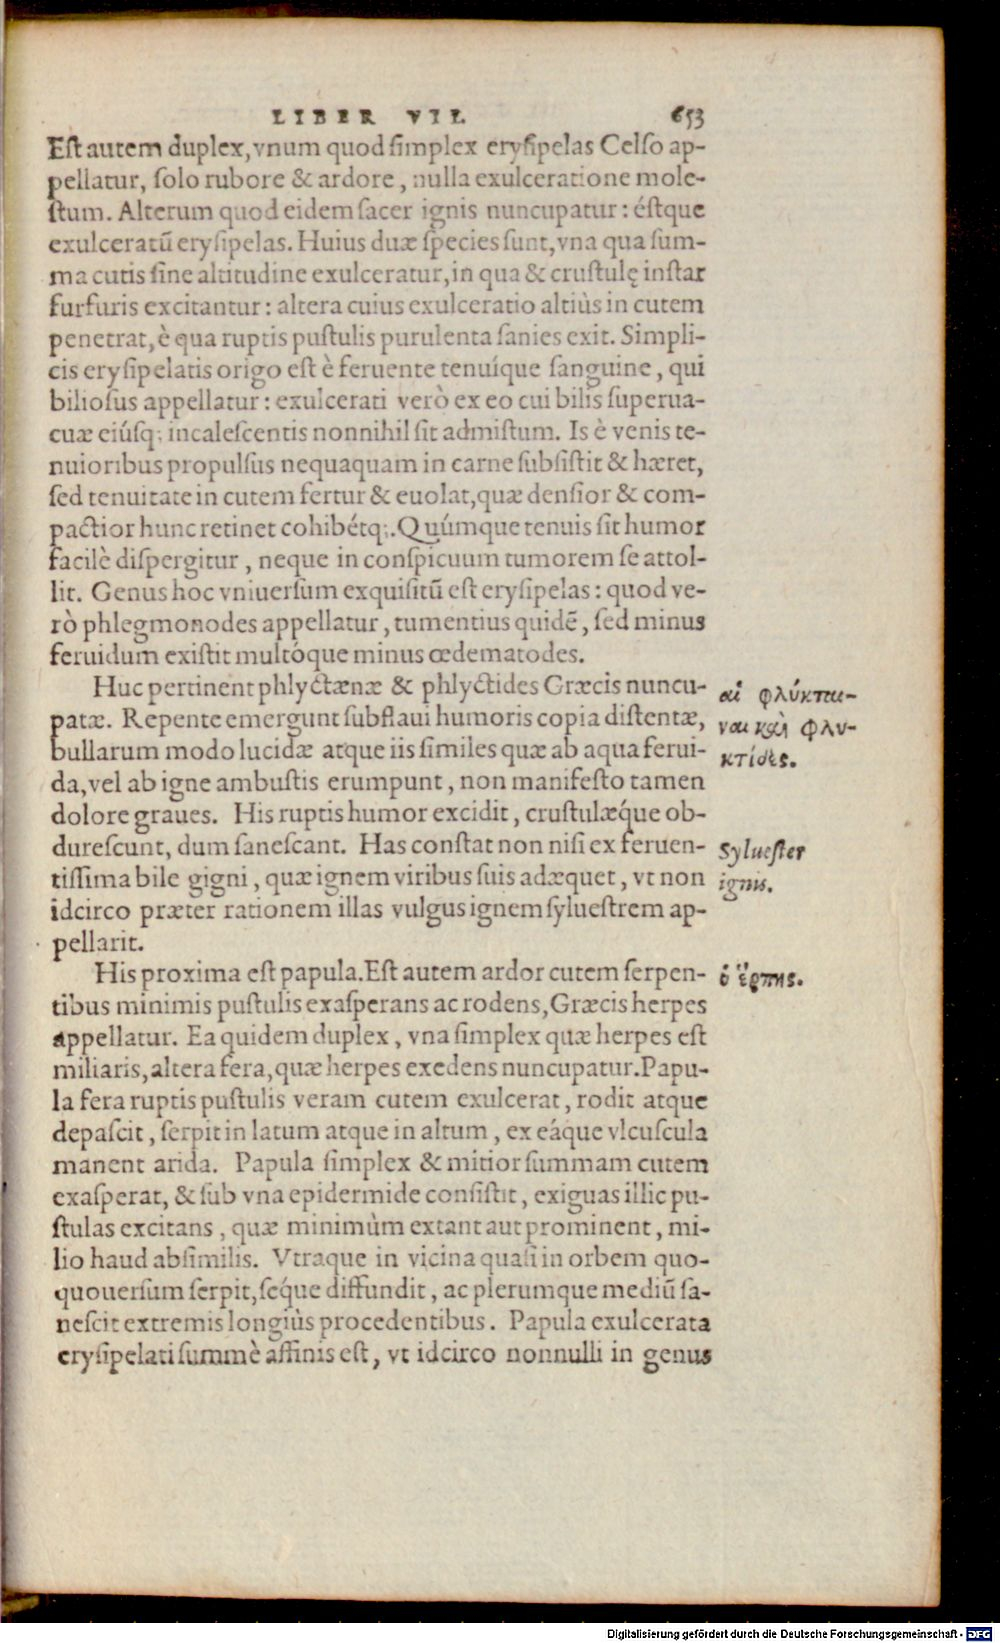 LIBER VII. 653
Est autem duplex, vnum quod simplex erysipelas Celso ap-
pellatur, solo rubore & ardore, nulla exulceratione mole-
stum. Alterum quod eidem sacer ignis nuncupatur: éstque
exulceratũ erysipelas. Huius duæ species sunt, vna qua sum-
ma cutis sine altitudine exulceratur, in qua & crustulę instar
furfuris excitantur: altera cuius exulceratio altiùs in cutem
penetrat, è qua ruptis pustulis purulenta sanies exit. Simpli-
cis erysipelatis origo est è feruente tenuíque sanguine, qui
biliosus appellatur: exulcerati verò ex eo cui bilis superua-
cuæ eiúsq; incalescentis nonnihil sit admistum. Is è venis te-
nuioribus propulsus nequaquam in carne subsistit & hæret,
sed tenuitate in cutem fertur & euolat, quæ densior & com-
pactior hunc retinet cohibétq;. Quúmque tenuis sit humor
facilè dispergitur, neque in conspicuum tumorem se attol-
lit. Genus hoc vniuersum exquisitũ est erysipelas: quod ve-
rò phlegmonodes appellatur, tumentius quidẽ, sed minus
feruidum existit multóque minus œdematodes.
Huc pertinent phlyctænæ & phlyctides Græcis nuncu-
patæ. Repente emergunt subflaui humoris copia distentæ,
bullarum modo lucidæ atque iis similes quæ ab aqua ferui-
da, vel ab igne ambustis erumpunt, non manifesto tamen
dolore graues. His ruptis humor excidit, crustulæque ob-
durescunt, dum sanescant. Has constat non nisi ex feruen-
tissima bile gigni, quæ ignem viribus suis adæquet, vt non
idcirco præter rationem illas vulgus ignem syluestrem ap-
pellarit.
αἱ φλύκται-
ναι καὶ φλυ-
κτίδες.
Syluester
ignis.
His proxima est papula. Est autem ardor cutem serpen-
tibus minimis pustulis exasperans ac rodens, Græcis herpes
appellatur. Ea quidem duplex, vna simplex quæ herpes est
miliaris, altera fera, quæ herpes exedens nuncupatur. Papu-
la fera ruptis pustulis veram cutem exulcerat, rodit atque
depascit, serpit in latum atque in altum, ex eáque vlcuscula
manent arida. Papula simplex & mitior summam cutem
exasperat, & sub vna epidermide consistit, exiguas illic pu-
stulas excitans, quæ minimùm extant aut prominent, mi-
lio haud absimilis. Vtraque in vicina quasi in orbem quo-
quouersum serpit, séque diffundit, ac plerumque mediũ sa-
nescit extremis longiùs procedentibus. Papula exulcerata
erysipelati summè affinis est, vt idcirco nonnulli in genus
ὁ ἕρπης.
Digitalisierung gefördert durch die Deutsche Forschungsgemeinschaft - DFG